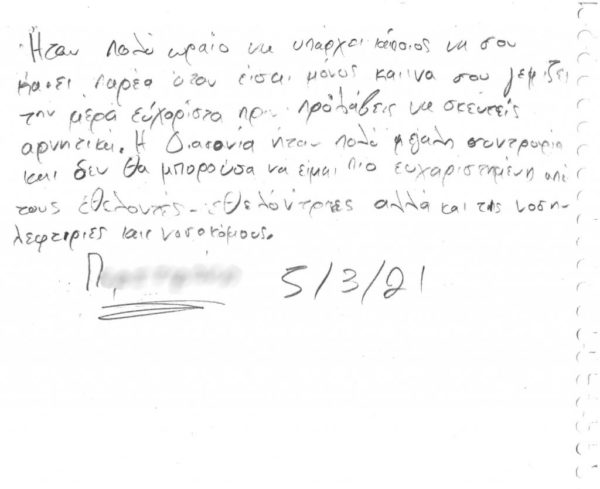 Ήταν πολύ ωραίο να υπάρχει κάποιος να σου
κάνει παρέα όταν είσαι μόνος και να σου γεμίζει
την μέρα ευχάριστα πριν προλάβεις να σκευτείς
αρνητικά. Η Διαπνοία ήταν πολύ μεγάλη συντροφιά
και δεν θα μπορούσα να είμαι πιο ευχαριστημένη από
τους εθελοντές-εθελόντριες αλλά και της νοση-
λεφτιριες και νοσοκόμους.
5/3/21